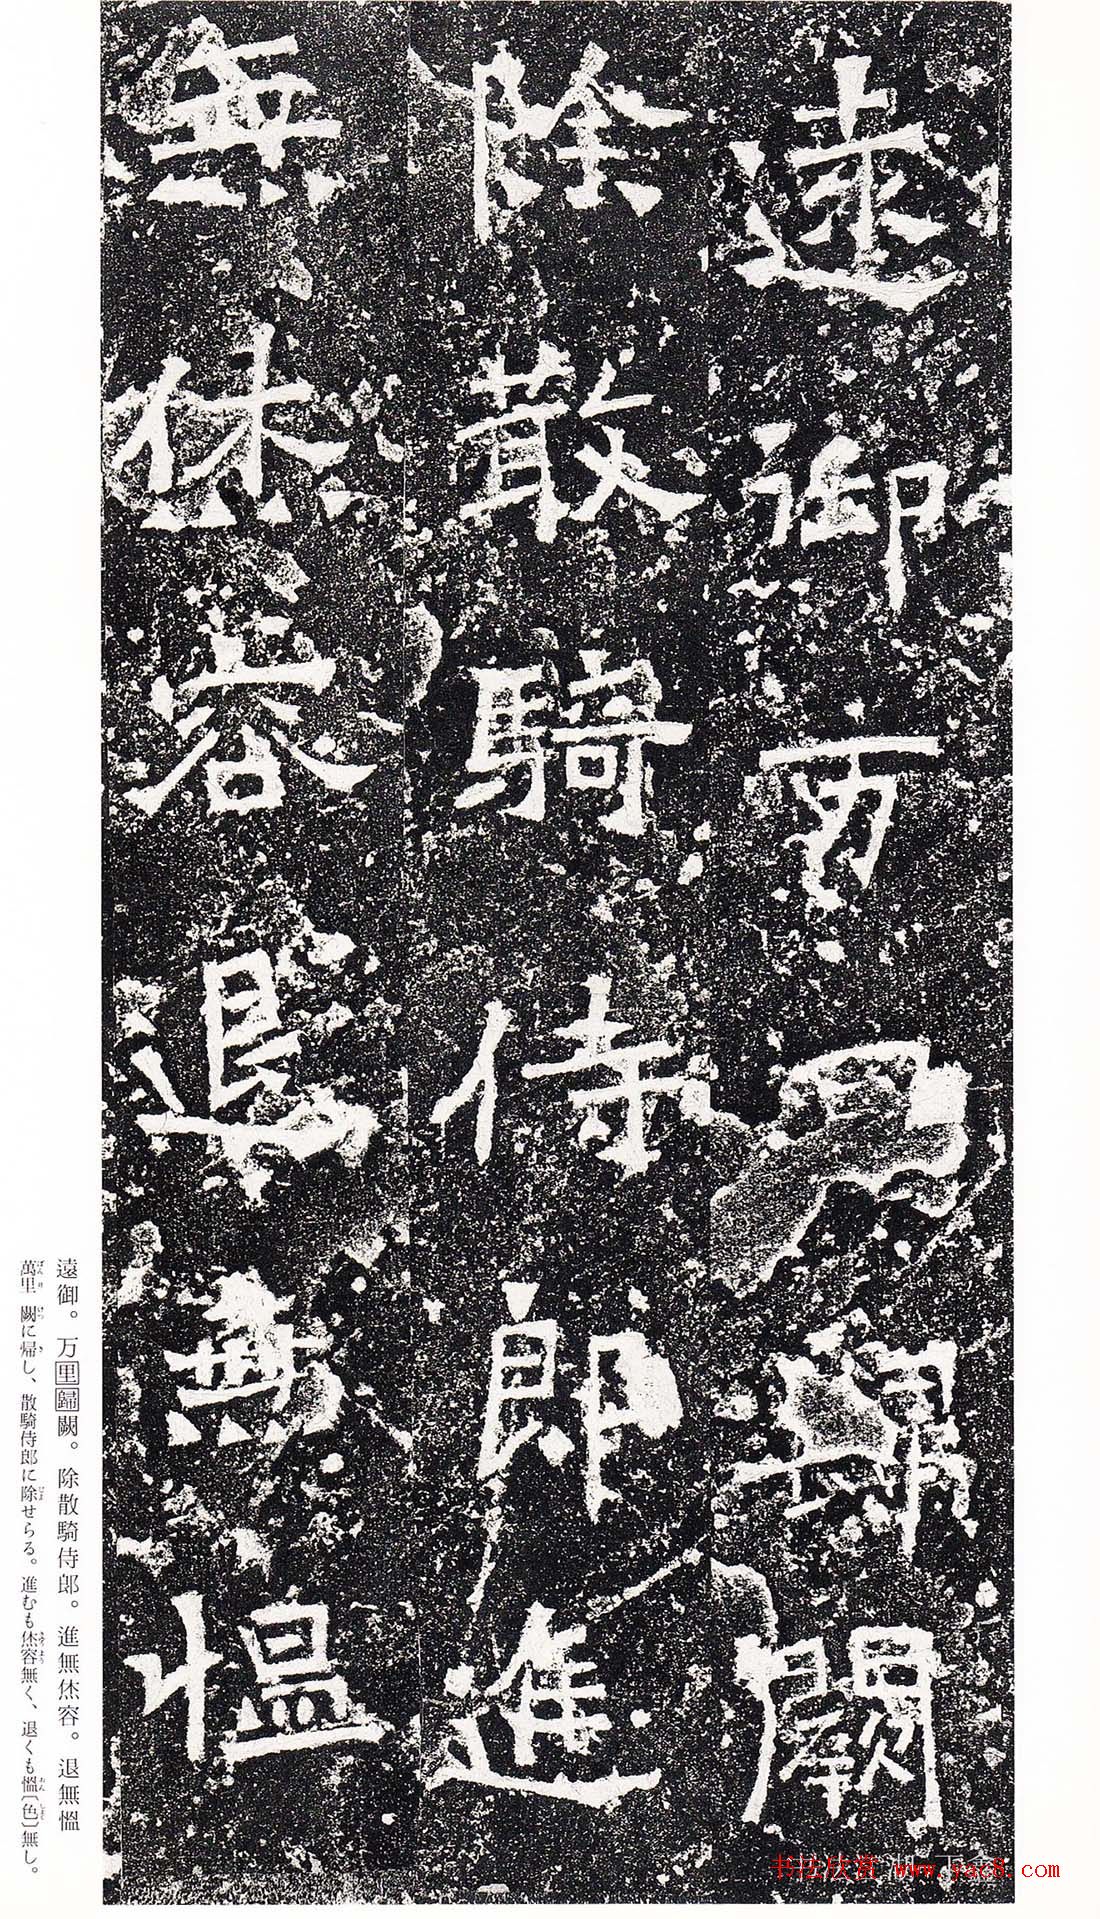 遠御万里歸闕
除散騎侍郎進
無烋容退無愠
遠御。万里歸闕。除散騎侍郎。進無烋容。退無慍
萬里 闕に帰し、散騎侍郎に除せらる。進むも烋容無く、退くも慍〔色〕無し。
书法欣赏 www.yac8.com